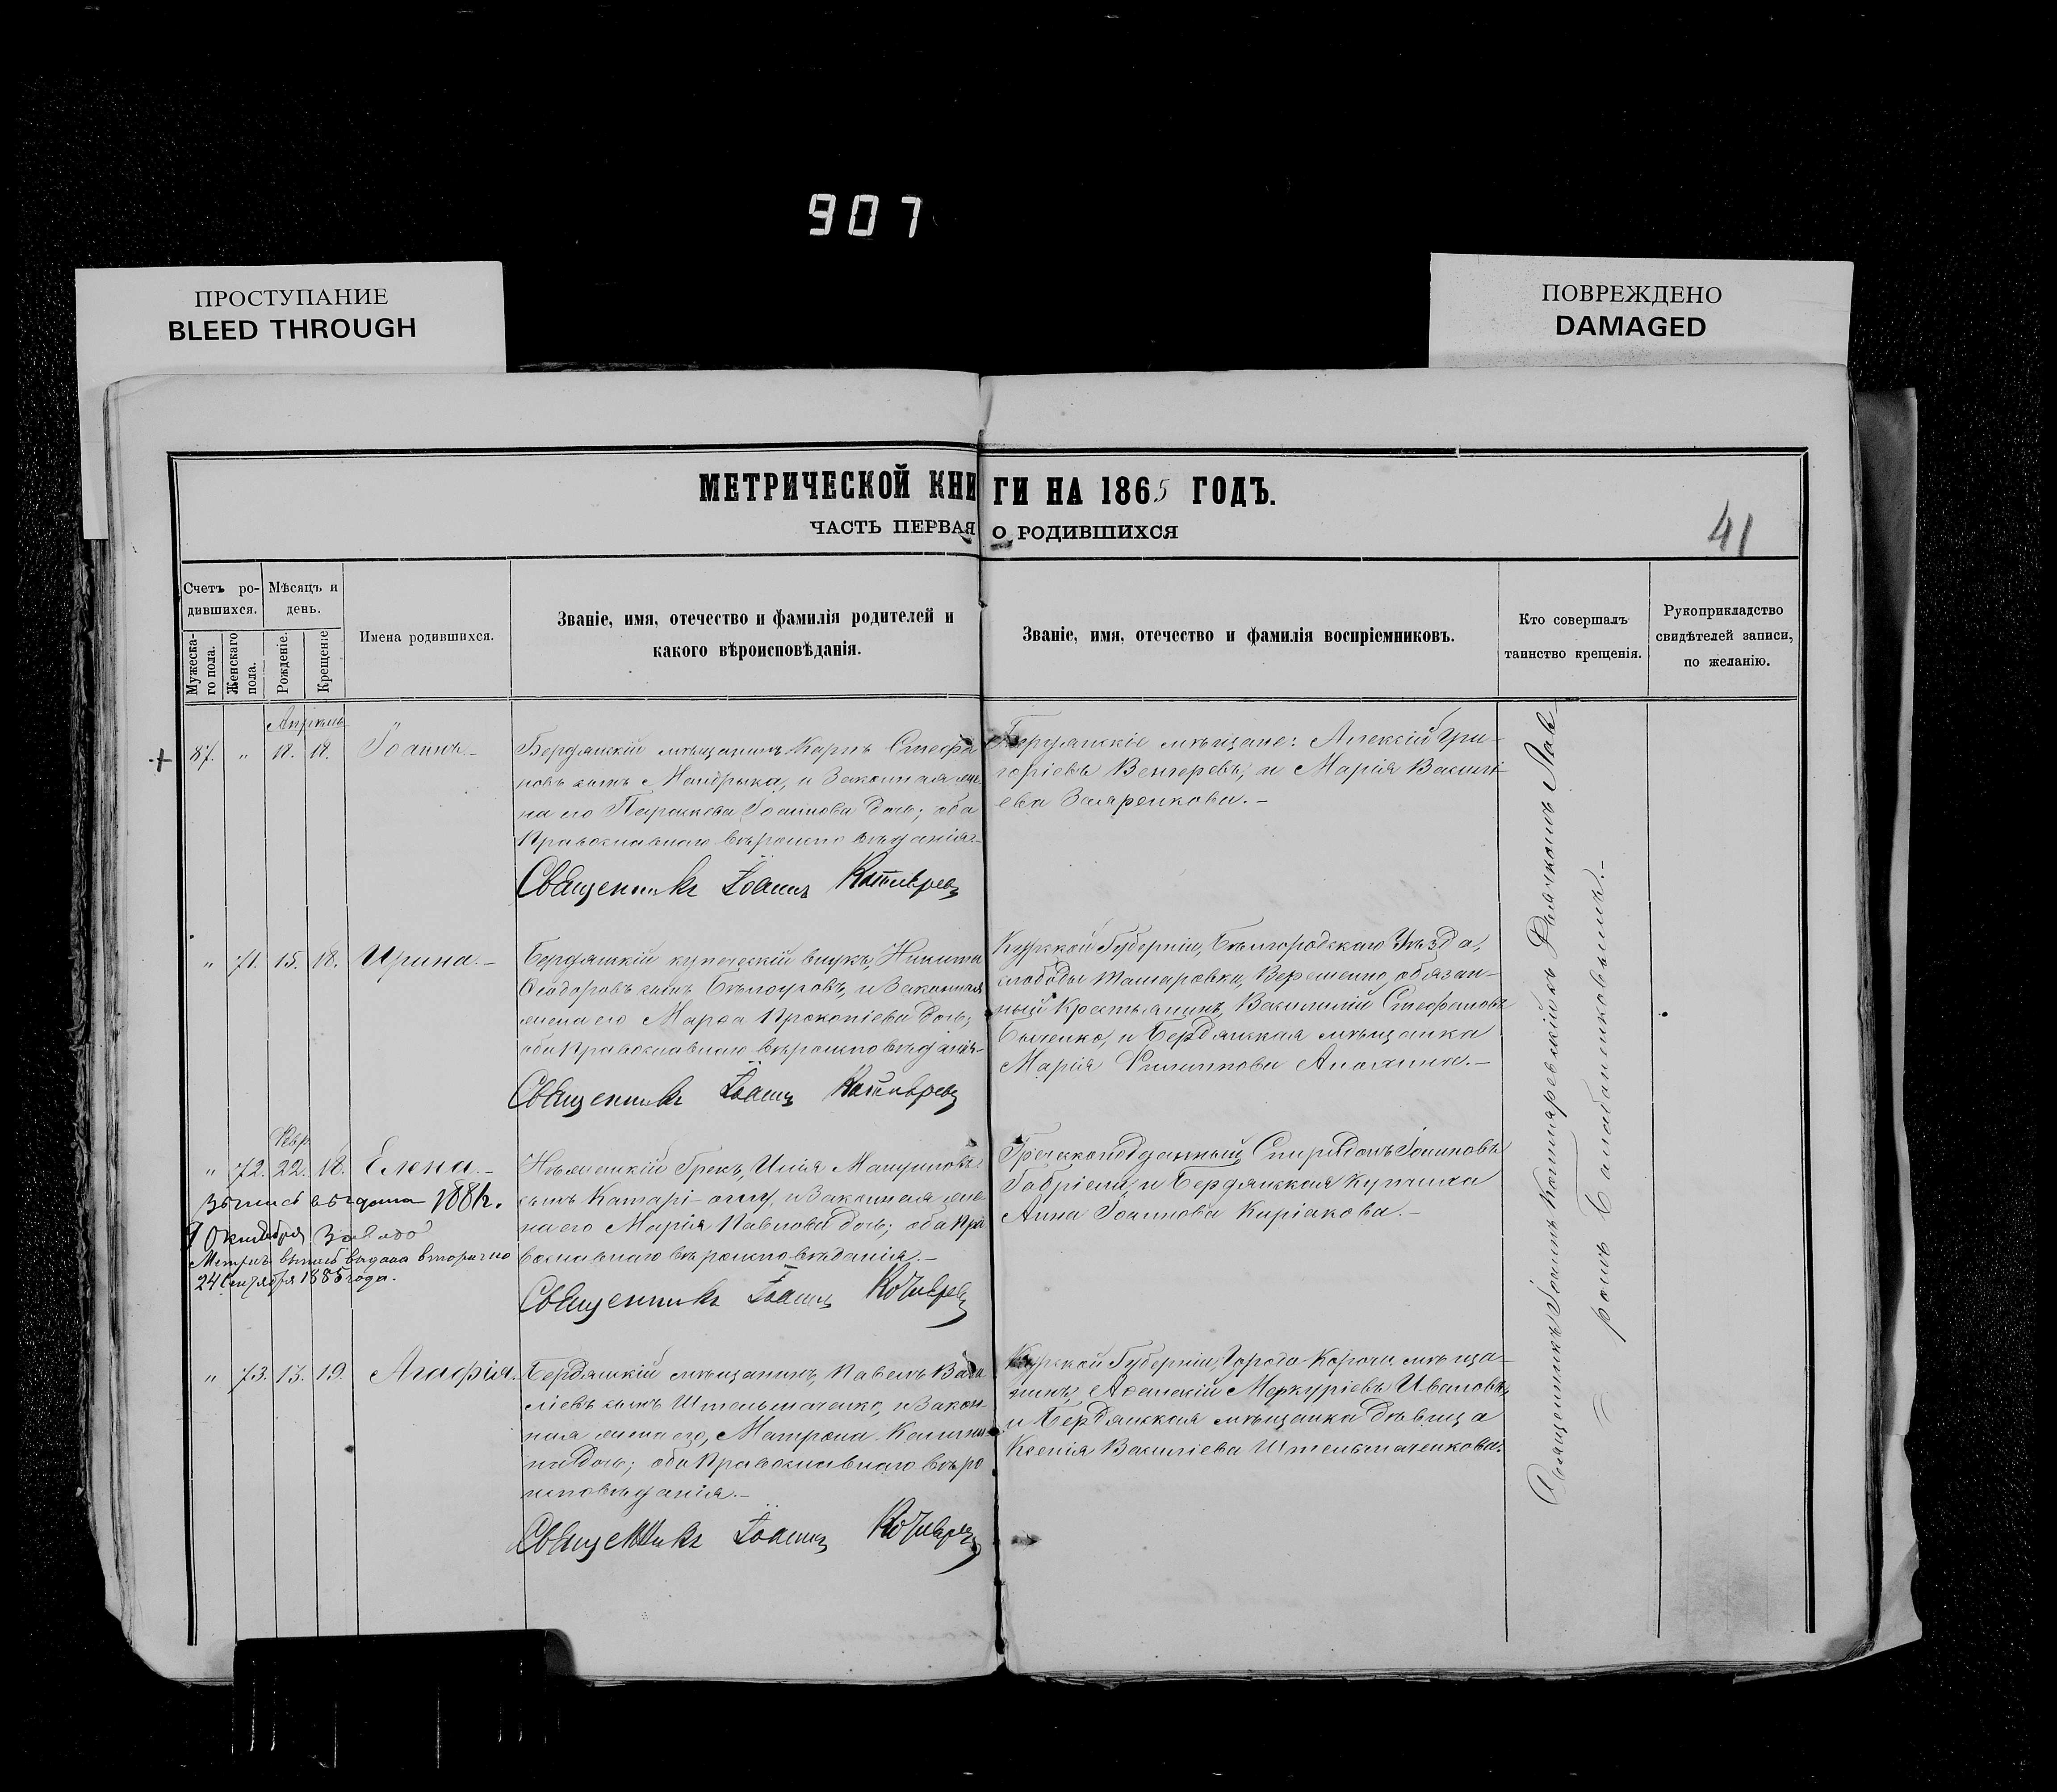 907
ПРОСТУПАНИЕ
BLEED THROUGH
ПОВРЕЖДЕНО
DAMAGED
МЕТРИЧЕСКОЙ КНИГИ НА 1865 ГОДЪ.
ЧАСТЬ ПЕРВАЯ О РОДИВШИХСЯ
41
Счетъ ро-
дившихся.
Мужеска-
го пола.
Женскаго
пола.
Мѣсяцъ и
день.
Рожденіе.
Крещеніе
Имена родившихся.
Званіе, имя, отечество и фамилія родителей и
какого вѣроисповѣданія.
Званіе, имя, отечество и фамилія воспріемниковъ.
Кто совершалъ
таинство крещенія.
Рукоприкладство
свидѣтелей записи,
по желанію.
Апрѣль
+ 87. " 18. 18. Іоаннъ
Бердянскій мѣщанинъ Карпъ Стефа
новъ сынъ и Законная же
на его Параскева Іоаннова дочь; оба
Православнаго вѣроисповѣданія
Священникъ Іоаннъ
Бердянскіе мѣщане: Алексій Гри-
горіевъ Венгеревъ, и Марія Василі-
ева
" 71. 15. 18. Ирина.-
Бердянскій купеческій внукъ, Никита
Ѳеодоровъ сынъ и Законная
жена его Марѳа Прокопіева дочь;
оба Православнаго вѣроисповѣданія-
Священникъ Іоаннъ
Курской Губерніи, Бѣлгородскаго Уѣзда,
слободы Томаровки, Временно обязан-
ный Крестьянинъ, Василій Стефановъ
и Бердянская мѣщанка
Марія Филиппова
Февр.
" 72. 22. 18. Елена.-
выдана 1884.
9 Октября
выдана вторично
24 1885 года.
Нѣжинскій Грекъ, Илія
сынъ и Законная же
на его Марія Павлова дочь; оба Пра
вославнаго вѣроисповѣданія.-
Священникъ Іоаннъ
Греческоподданный Спиридонъ Іоанновъ
и Бердянская Купчиха
Анна Іоаннова Киріакова.-
" 73. 13. 19. Агафія.
Бердянскій мѣщанинъ, Павелъ Васи
ліевъ сынъ Штельмаченко, и Закон-
ная жена его, Матрона
на дочь; оба Православнаго вѣро
исповѣданія.-
Священникъ Іоаннъ
Курской Губерніи, Города Корочи мѣща-
нинъ, Меркуріевъ Ивановъ,
и Бердянская мѣщанка дѣвица
Ксенія Василіева Штельмаченкова.
Священникъ Іоаннъ съ Діакономъ Лав-
ромъ Балабаненковымъ.-